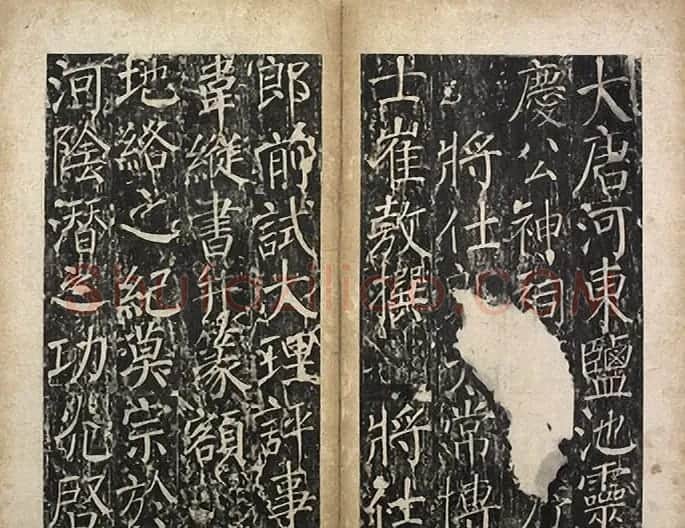 大唐河東鹽池靈
慶公神
將仕 常博
士崔敖撰 將仕
郎前試大理評事
韋縱書并篆額
地絡之紀漠宗於
河陰潛之功 啓
Shufaziliao.COM